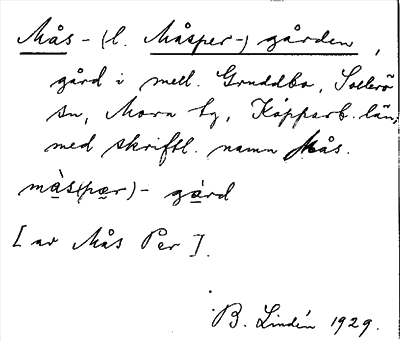 Mås- (l. Måsper-) gården,
gård i mell. Gruddbo, Sollerö
sn, Mora tg, Kopparb. län,
med skriftl. namn Mås.
mà̱s(pæ̱r)- gå̱rd
[av Mås Per].
B. Lindén 1929.